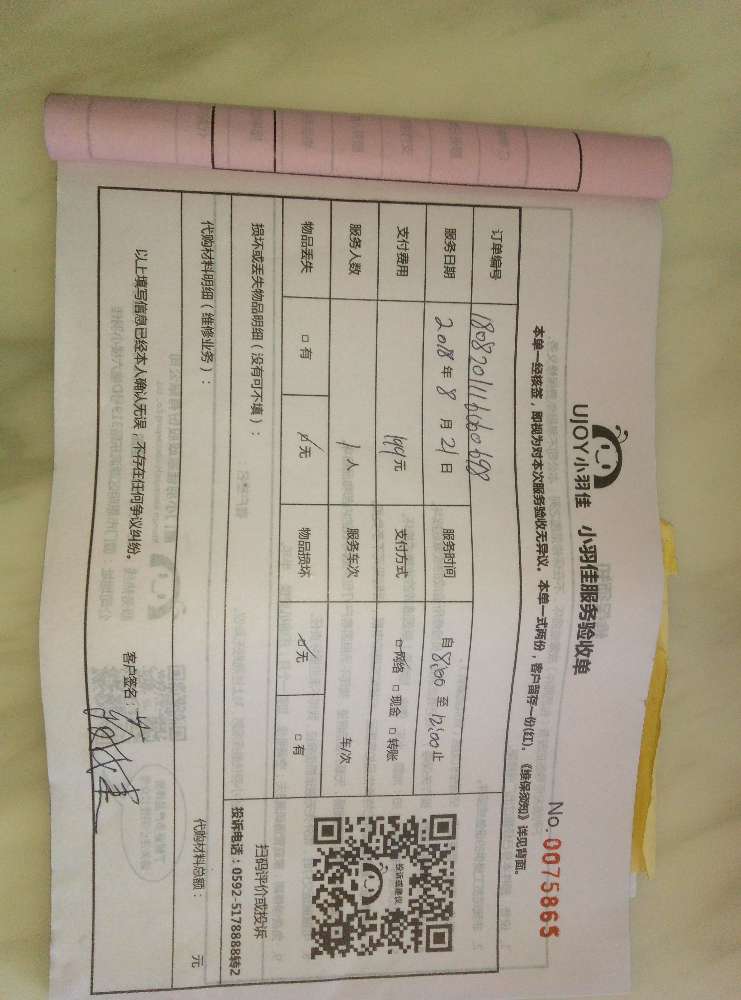 UJOY小羽佳 小羽佳服务验收单
No. 0075865
本单一经核签，即视为对本次服务验收无异议，本单一式两份，客户留存一份(红)。《维保须知》详见背面。
订单编号
服务日期 2018 年 8 月 21 日 服务时间 自 8:00 至 12:00 止
支付费用 199 元 支付方式 □ 网络 □ 现金 □ 转账
服务人数 1 人 服务车次 车/次
物品丢失 □ 有 □ 无 物品损坏 □ 无 □ 有
损坏或丢失物品明细（没有可不填）：
投诉或建议
扫码评价或投诉
投诉电话：0592-5178888转2
代购材料明细（维修业务）：
代购材料总额： 元
以上填写信息已经本人确认无误，不存在任何争议纠纷。
客户签名：